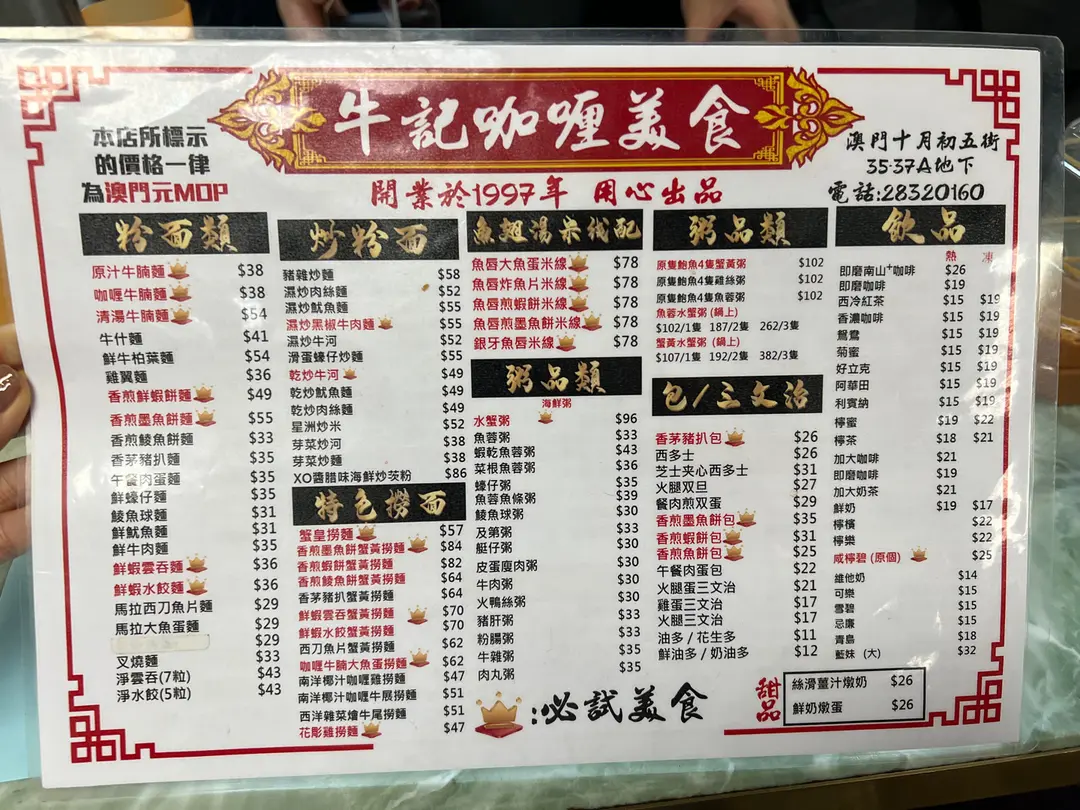 牛記咖喱美食
本店所標示
的價格一律
為澳門元MOP
開業於1997年 用心出品
澳門十月初五街
35-37A地下
電話:28320160
粉面類
原汁牛腩麵 $38
咖喱牛腩麵 $38
清湯牛腩麵 $54
牛什麵 $41
鮮牛柏葉麵 $54
雞翼麵 $36
香煎鮮蝦餅麵 $49
香煎墨魚餅麵 $55
香煎鯪魚餅麵 $33
香茅豬扒麵 $35
午餐肉蛋麵 $35
鮮蠔仔麵 $35
鯪魚球麵 $31
鮮魷魚麵 $31
鮮牛肉麵 $35
鮮蝦雲吞麵 $36
鮮蝦水餃麵 $36
馬拉西刀魚片麵 $29
馬拉大魚蛋麵 $29
$29
叉燒麵 $33
淨雲吞(7粒) $43
淨水餃(5粒) $43
炒粉面
豬雜炒麵 $58
濕炒肉絲麵 $52
濕炒魷魚麵 $55
濕炒黑椒牛肉麵 $55
濕炒牛河 $52
滑蛋蠔仔炒麵 $55
乾炒牛河 $49
乾炒魷魚麵 $49
乾炒肉絲麵 $49
星洲炒米 $52
芽菜炒河 $38
芽菜炒麵 $38
XO醬腊味海鮮炒茨粉 $86
特色撈面
蟹皇撈麵 $57
香煎墨魚餅蟹黃撈麵 $84
香煎蝦餅蟹黃撈麵 $82
香煎鯪魚餅蟹黃撈麵 $64
香茅豬扒蟹黃撈麵 $64
鮮蝦雲吞蟹黃撈麵 $70
鮮蝦水餃蟹黃撈麵 $70
西刀魚片蟹黃撈麵 $62
咖喱牛腩大魚蛋撈麵 $62
南洋椰汁咖喱雞撈麵 $47
南洋椰汁咖喱牛展撈麵 $51
西洋雜菜燴牛尾撈麵 $51
花彫雞撈麵 $47
魚翅湯米线配
魚唇大魚蛋米線 $78
魚唇炸魚片米線 $78
魚唇煎蝦餅米線 $78
魚唇煎墨魚餅米線 $78
銀牙魚唇米線 $78
粥品類
海鮮粥
水蟹粥 $96
魚蓉粥 $33
蝦乾魚蓉粥 $43
菜根魚蓉粥 $36
蠔仔粥 $35
魚蓉魚條粥 $39
鯪魚球粥 $30
及第粥 $33
艇仔粥 $30
皮蛋廋肉粥 $30
牛肉粥 $30
火鴨絲粥 $30
豬肝粥 $33
粉腸粥 $33
牛雜粥 $35
肉丸粥 $35
:必試美食
粥品類
原隻鮑魚4隻蟹黃粥 $102
原隻鮑魚4隻雞絲粥 $102
原隻鮑魚4隻魚蓉粥 $102
魚蓉水蟹粥 (鍋上)
$102/1隻 187/2隻 262/3隻
蟹黃水蟹粥 (鍋上)
$107/1隻 192/2隻 382/3隻
包/三文治
香茅豬扒包 $26
西多士 $26
芝士夹心西多士 $31
火腿双旦 $27
餐肉煎双蛋 $29
香煎墨魚餅包 $35
香煎蝦餅包 $31
香煎魚餅包 $25
午餐肉蛋包 $22
火腿蛋三文治 $21
雞蛋三文治 $17
火腿三文治 $17
油多 / 花生多 $11
鮮油多 / 奶油多 $12
飲品
熱 凍
即磨南山+咖啡 $26
即磨咖啡 $19
西冷紅茶 $15 $19
香濃咖啡 $15 $19
鴛鴦 $15 $19
菊蜜 $15 $19
好立克 $15 $19
阿華田 $15 $19
利賓納 $15 $19
檸蜜 $19 $22
檸茶 $18 $21
加大咖啡 $21
即磨咖啡 $19
加大奶茶 $21
鮮奶 $19 $17
檸檬 $22
檸樂 $22
咸檸碧 (原個) $25
維他奶 $14
可樂 $15
雪碧 $15
忌廉 $15
青島 $18
藍妹 (大) $32
甜品
絲滑薑汁燉奶 $26
鮮奶燉蛋 $26